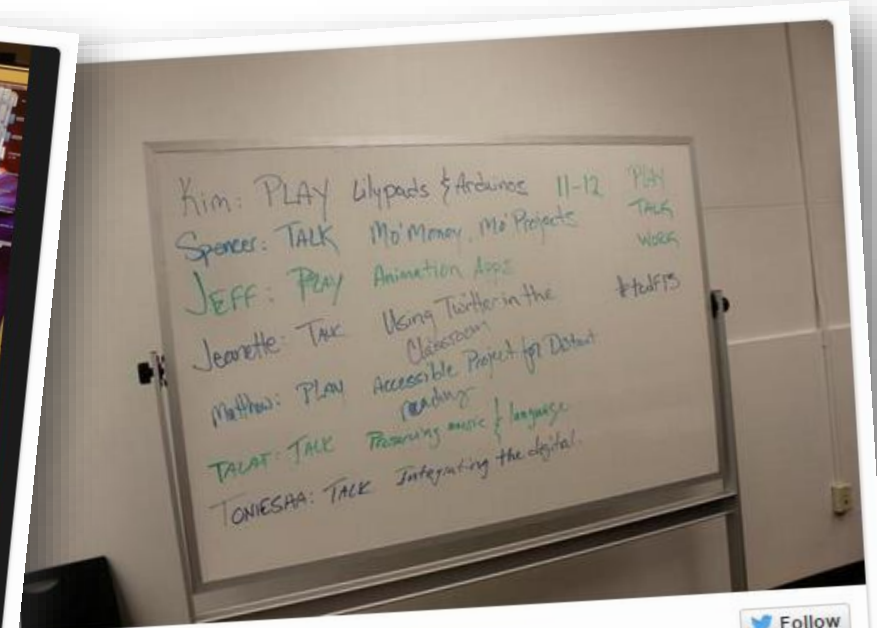 Kim: PLAY Lilypads & Arduinos 11-12 PLAY
Spencer: TALK Mo' Money, Mo' Projects TALK
JEFF: PLAY Animation Apps WORK
Jeanette: TALK Using Twitter in the #tcdf13
Classroom
Matthew: PLAY Accessible Project for Distant
reading
TALAT: TALK Preserving music & language
TONIESHA: TALK Integrating the digital.
Follow